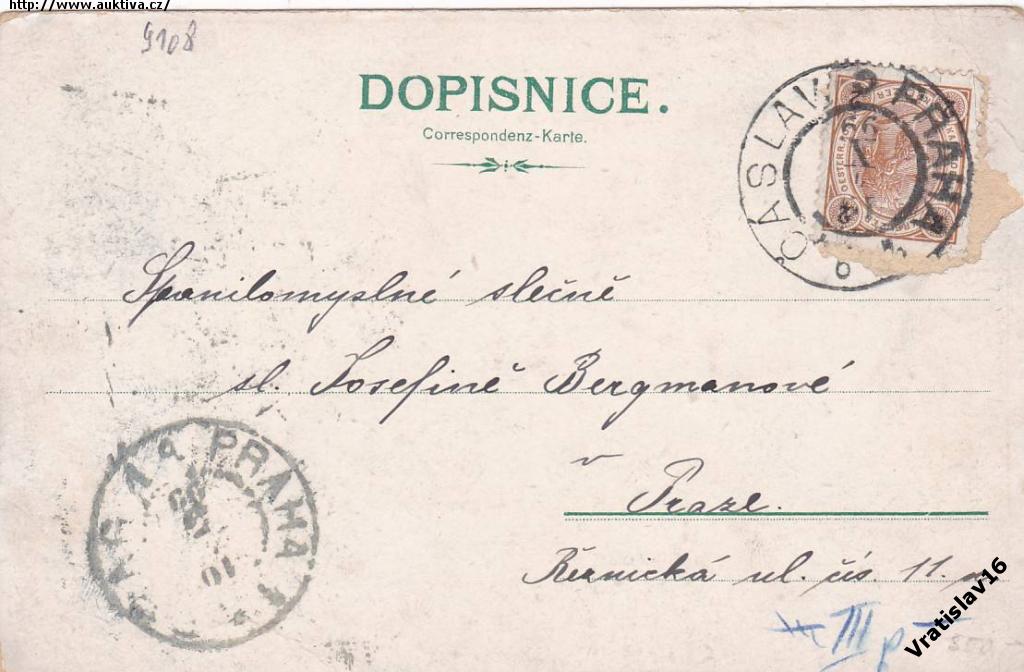 http://www.auktiva.cz/
9108
DOPISNICE.
Correspondenz-Karte.
ČÁSLAV PRAHA
Spanilomyslné slečně
sl. Josefině Bergmanové
v
Praze.
Řeznická ul. čís. 11. n
PRAHA 1
III p
Vratislav16